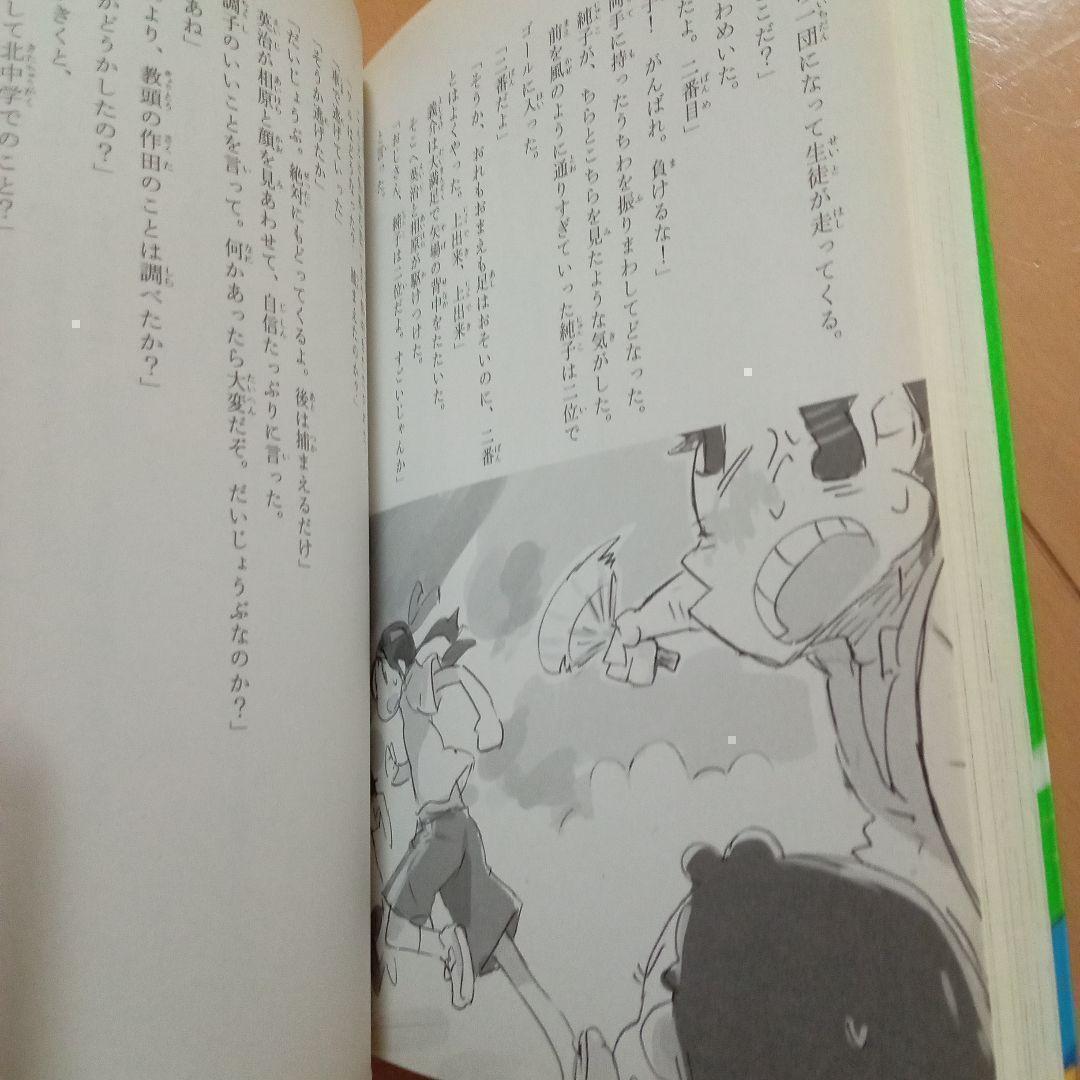 一団になって生徒が走ってくる。
こだ？」
わめいた。
だよ。二番目」
子！　がんばれ。負けるな！」
両手に持ったうちわを振りまわしてどなった。
純子が、ちらとこちらを見たような気がした。
前を風のように通りすぎていった純子は二位で
ゴールに入った。
「二番だよ」
「そうか、おれもおまえも足はおそいのに、二番
とはよくやった。上出来、上出来」
義介は大満足で矢場の背中をたたいた。
そこへ英治と相原が駆けつけた。
「おじさん、純子は二位だよ。すごいじゃんか」
と言った。
逃げていった」
「そうか逃げたか」
「だいじょうぶ。絶対にもどってくるよ。後は捕まえるだけ」
英治が相原と顔を見あわせて、自信たっぷりに言った。
調子のいいことを言って。何かあったら大変だぞ。だいじょうぶなのか？」
あね」
より、教頭の作田のことは調べたか？」
がどうかしたの？」
きくと、
して北中学でのこと？」